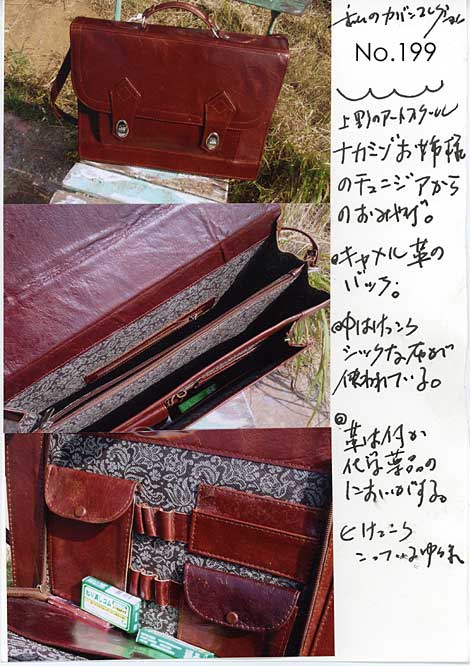 私のカバンコレクション
No.199
上野のアートスクール
ナカミゾお姉様
のチュニジアから
のおみやげ。
キャメル革の
バッグ。
中はけっこう
シックな布が
使われている。
革は何か
化学薬品の
においがする。
けっこう
ねり消しゴム